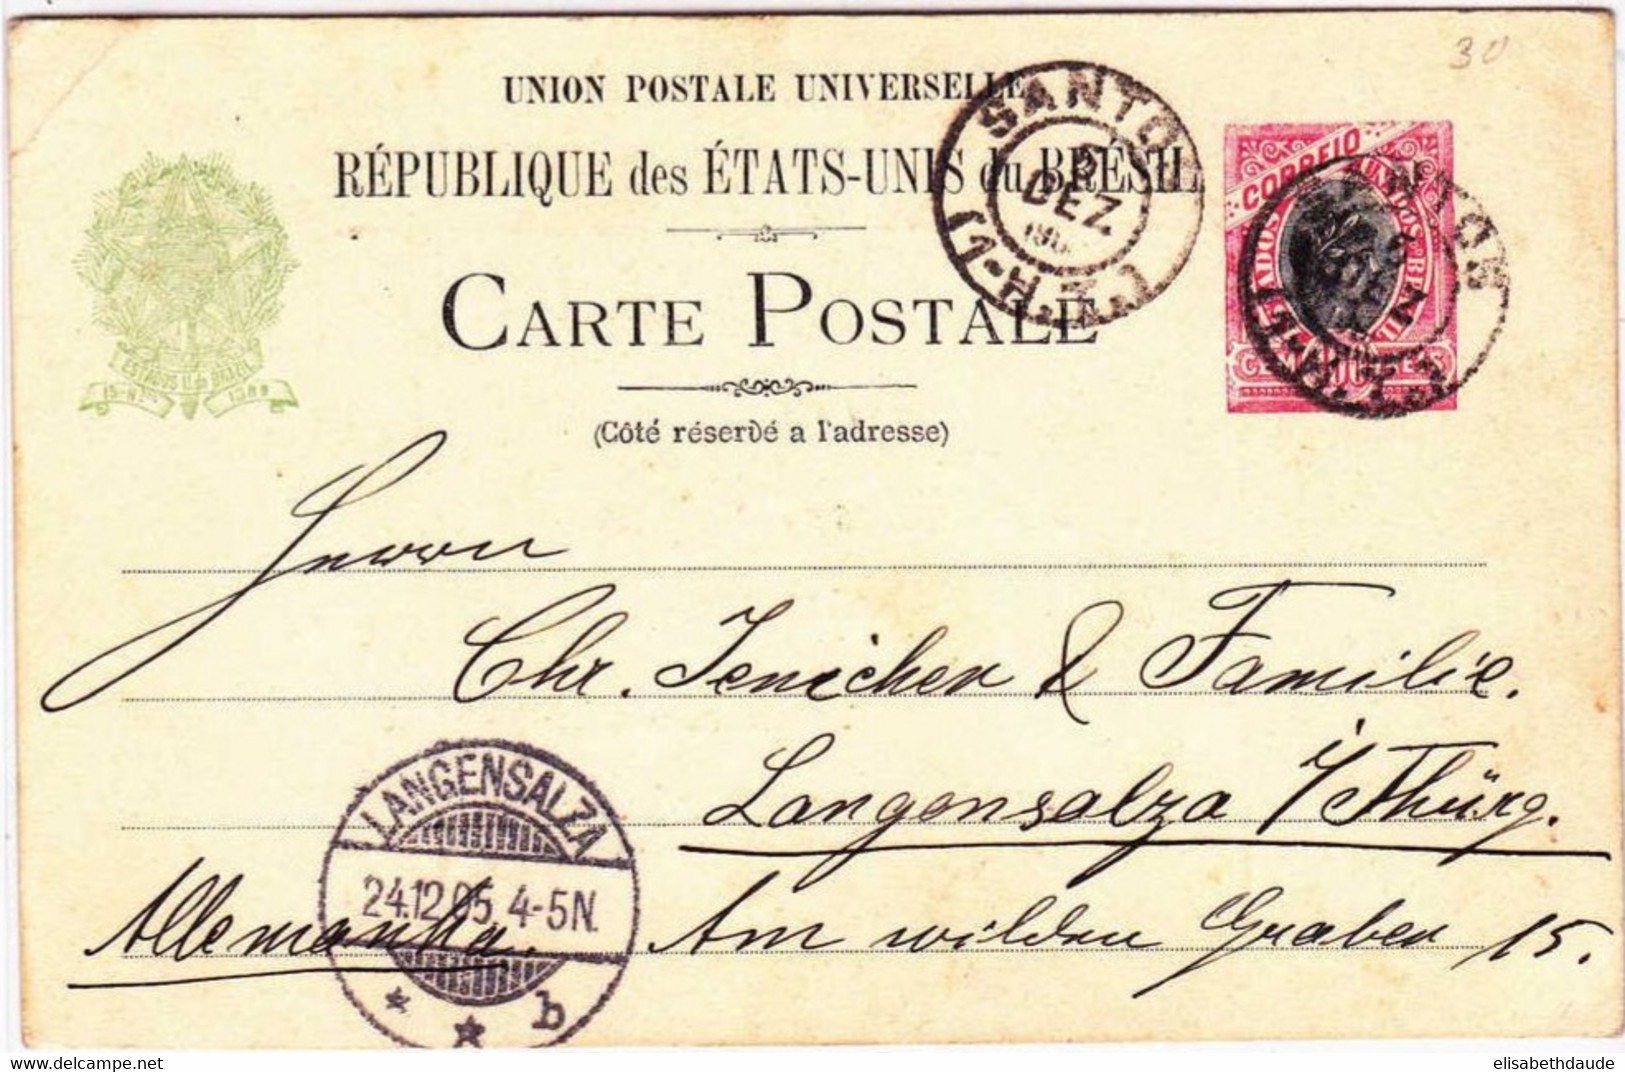 30
UNION POSTALE UNIVERSELLE
RÉPUBLIQUE des ÉTATS-UNIS du BRÉSIL
CARTE POSTALE
(Côté réservé a l'adresse)
ESTADOS U. do BRAZIL
15-Nbro 1889
SANTOS
DEZ
190
(1-H.T.)
CORREIO
ESTADOS UNIDOS BRAZIL
100
Herrn
Chr. Jenicher & Familie.
Langensalza i/Thürg.
Am wilden Graben 15.
Allemanha.
LANGENSALZA
24.12.05. 4-5N.
* * b
elisabethdaude